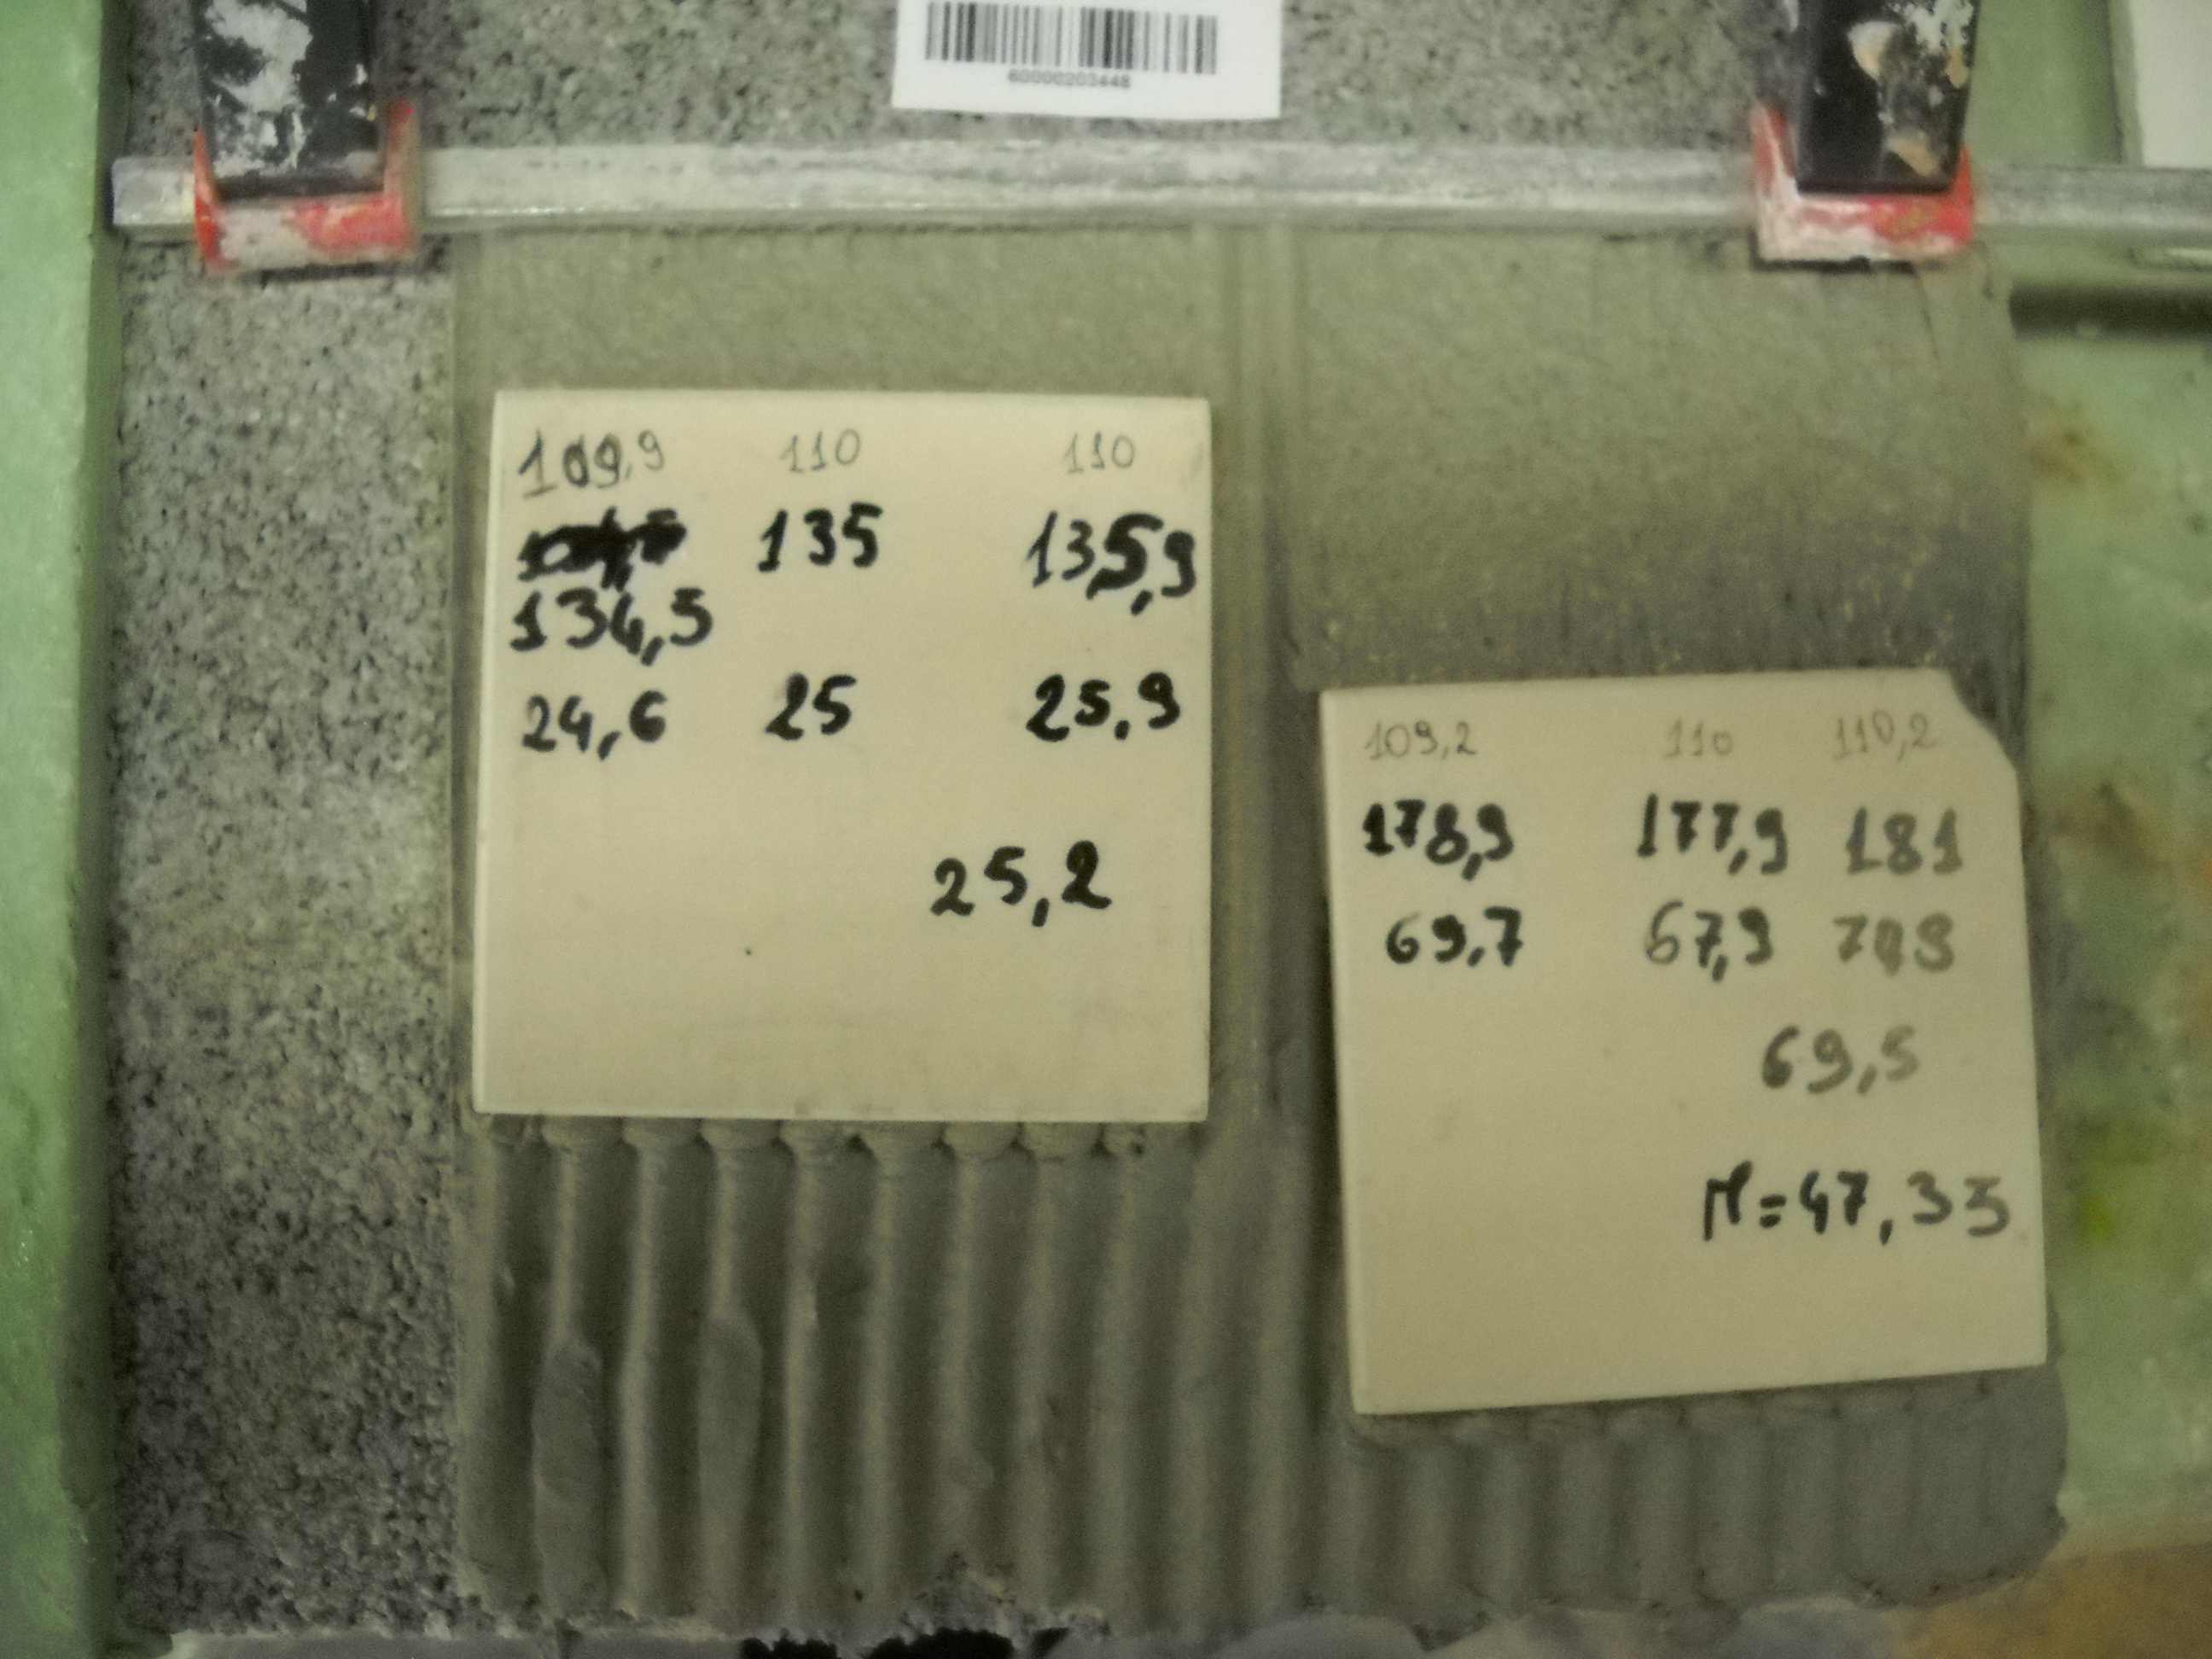 60000203448
109,9 110 110
135 135,9
134,5
24,6 25 25,9
25,2
109,2 110 110,2
178,9 177,9 181
69,7 67,9
69,5
M=47,35